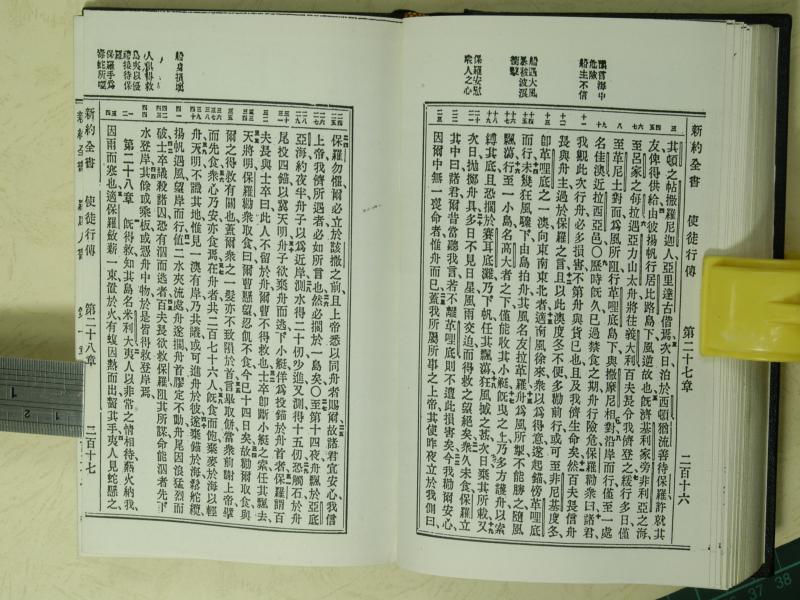 新約全書 使徒行傳 第二十七章 二百十六
其頓之帖撒羅尼迦人亞里達古偕焉、次日泊於西頓、猶流善待保羅、許就其
友俾得供給、由彼揚帆、行居比路島下、風逆故也、旣濟基利家旁非利亞之海、
至呂家之每拉、遇亞力山太舟、將往義大利、百夫長令我儕登之、緩行多日、僅
至革尼土對面、爲風所阻、行革哩底島下、與撒摩尼相對、沿岸而行、僅至一處
名佳澳、近拉西亞邑、〇歷時旣久、已過禁食之期、舟行險危、保羅勸衆曰、諸君、
我觀此次行舟、必多損害、不第舟與貨已也、且及我儕生命矣、然百夫長信舟
長與舟主、過於保羅之言、且以此澳度冬不便、多勸前行、或可至非尼基度冬、
卽革哩底之一澳、向東南東北者、適南風徐來、衆以爲得意、遂起錨傍革哩底
而行、未幾狂風驟下、由島拍舟、其風名友拉革羅、舟爲風所掣、不能勝之、隨風
飄蕩、行至一小島、名高大者之下、僅能收其小艇、旣曳之上、乃多方護舟、以索
縛其底、且恐擱於賽耳底灘、乃下帆任其飄蕩、狂風撼之甚、次日棄其所載、又
次日拋擲舟具、多日不見日星、風雨交迫、而得救之望絕矣、衆久未食、保羅立
其中曰、諸君、爾昔當聽我言、若不離革哩底、則不遭此損害矣、今我勸爾安心、
因爾中無一喪命者、惟舟而已、蓋我所屬所事之上帝、其使昨夜立於我側曰、
船主不信
船遇大風
暴被波浪
衝擊
保羅安慰
衆人之心
保羅勿懼、爾必立於該撒之前、且上帝悉以同舟者賜爾、故諸君宜安心、我信
上帝、我儕所遇者、必如所言也、然必擱於一島矣、〇至第十四夜、舟飄於亞底
亞海、約夜半、舟子以爲近岸、測水得二十仞、少進又測、得十五仞、恐觸石、於舟
尾投四錨、以冀天明、舟子欲棄舟而逃、下小艇、佯爲投錨於舟首者、保羅謂百
夫長與士卒曰、此人不留於舟、爾曹不得救也、士卒卽斷小艇之索、任其飄去、
天將明、保羅勸衆取食曰、爾曹懸望忍飢不食、今已十四日矣、故勸爾取食、與
爾之得救有關也、蓋爾衆之一髮、亦不致隕於首、言畢、取餅當衆前謝上帝、擘
而先食、衆心乃安、亦食焉、在舟者共二百七十六人、旣食而飽、棄麥於海以輕
舟、天明、不識其地、惟見一澳有岸、乃共議或可進舟於彼、遂棄錨於海、鬆舵纜、
揚帆遇風、望岸而行、値二水夾流處、舟遂擱、舟首膠定不動、舟尾因浪猛烈而
破、士卒議殺諸囚、恐有泅而逃者、百夫長欲救保羅、阻其所謀、命能泅者先下
水登岸、其餘或乘板、或憑舟中物、於是皆得救登岸焉、
第二十八章 旣得救、知其島名米利大、夷人以非常之情相待、爇火納我、
因雨而寒也、適保羅斂薪一束、置於火、有蝮因熱而出、齧其手、夷人見蛇懸之
船身損壞
人俱得救
保羅手爲
毒蛇所噬
新約全書 第二十八章 二百十七